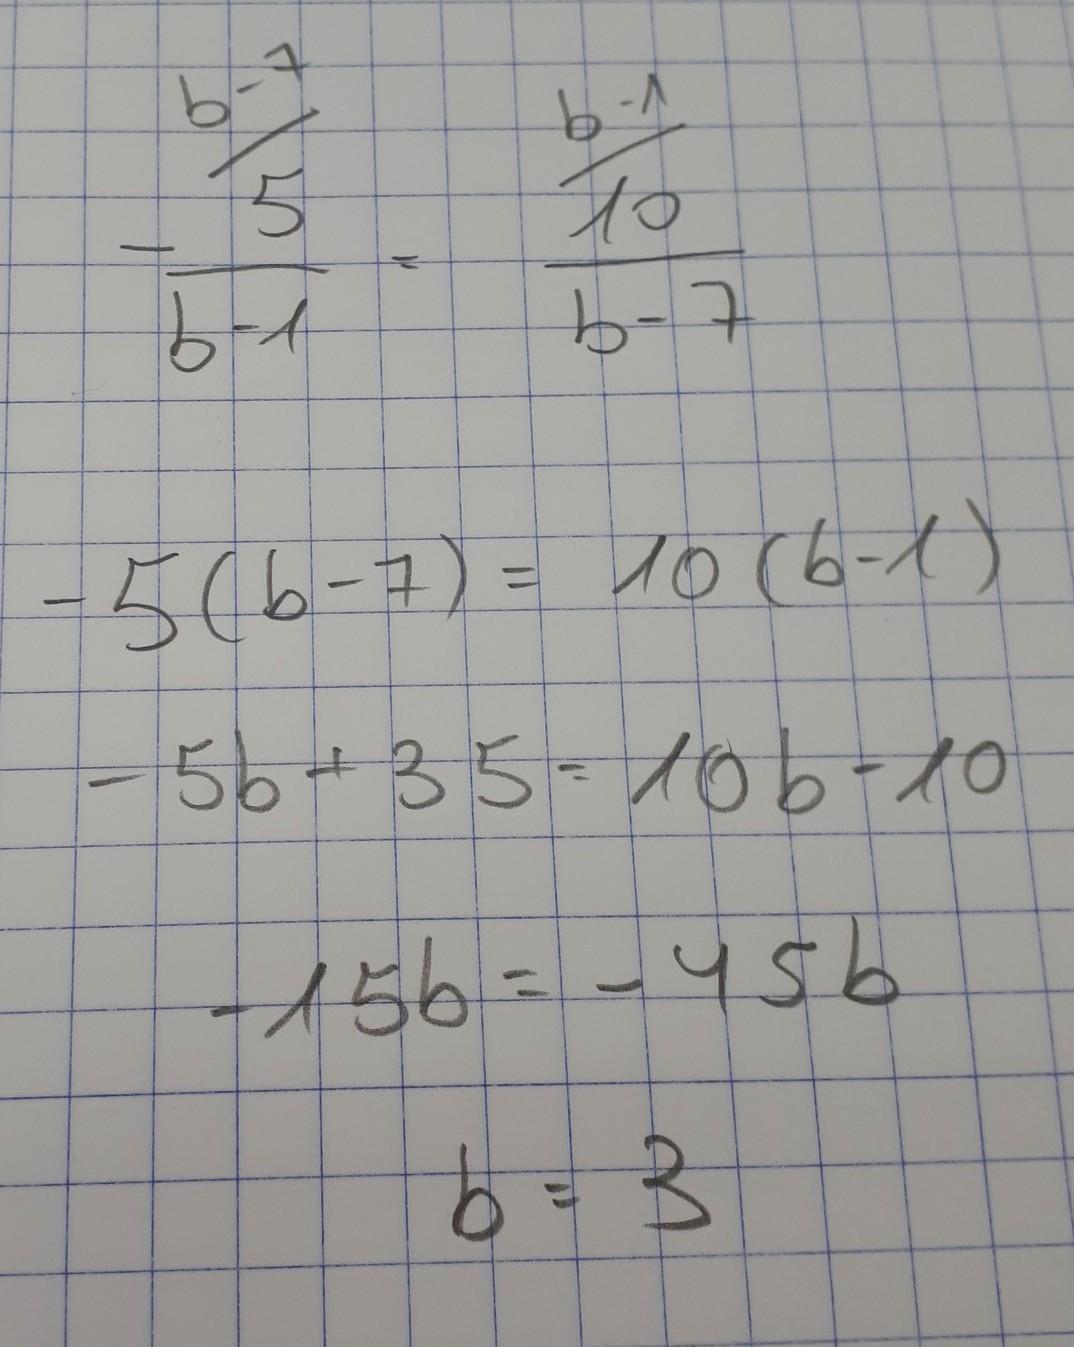 b-7/ b-1/
- 5/(b-1) = 10/(b-7)
-5(b-7) = 10(b-1)
-5b+35=10b-10
-15b=-45b
b=3